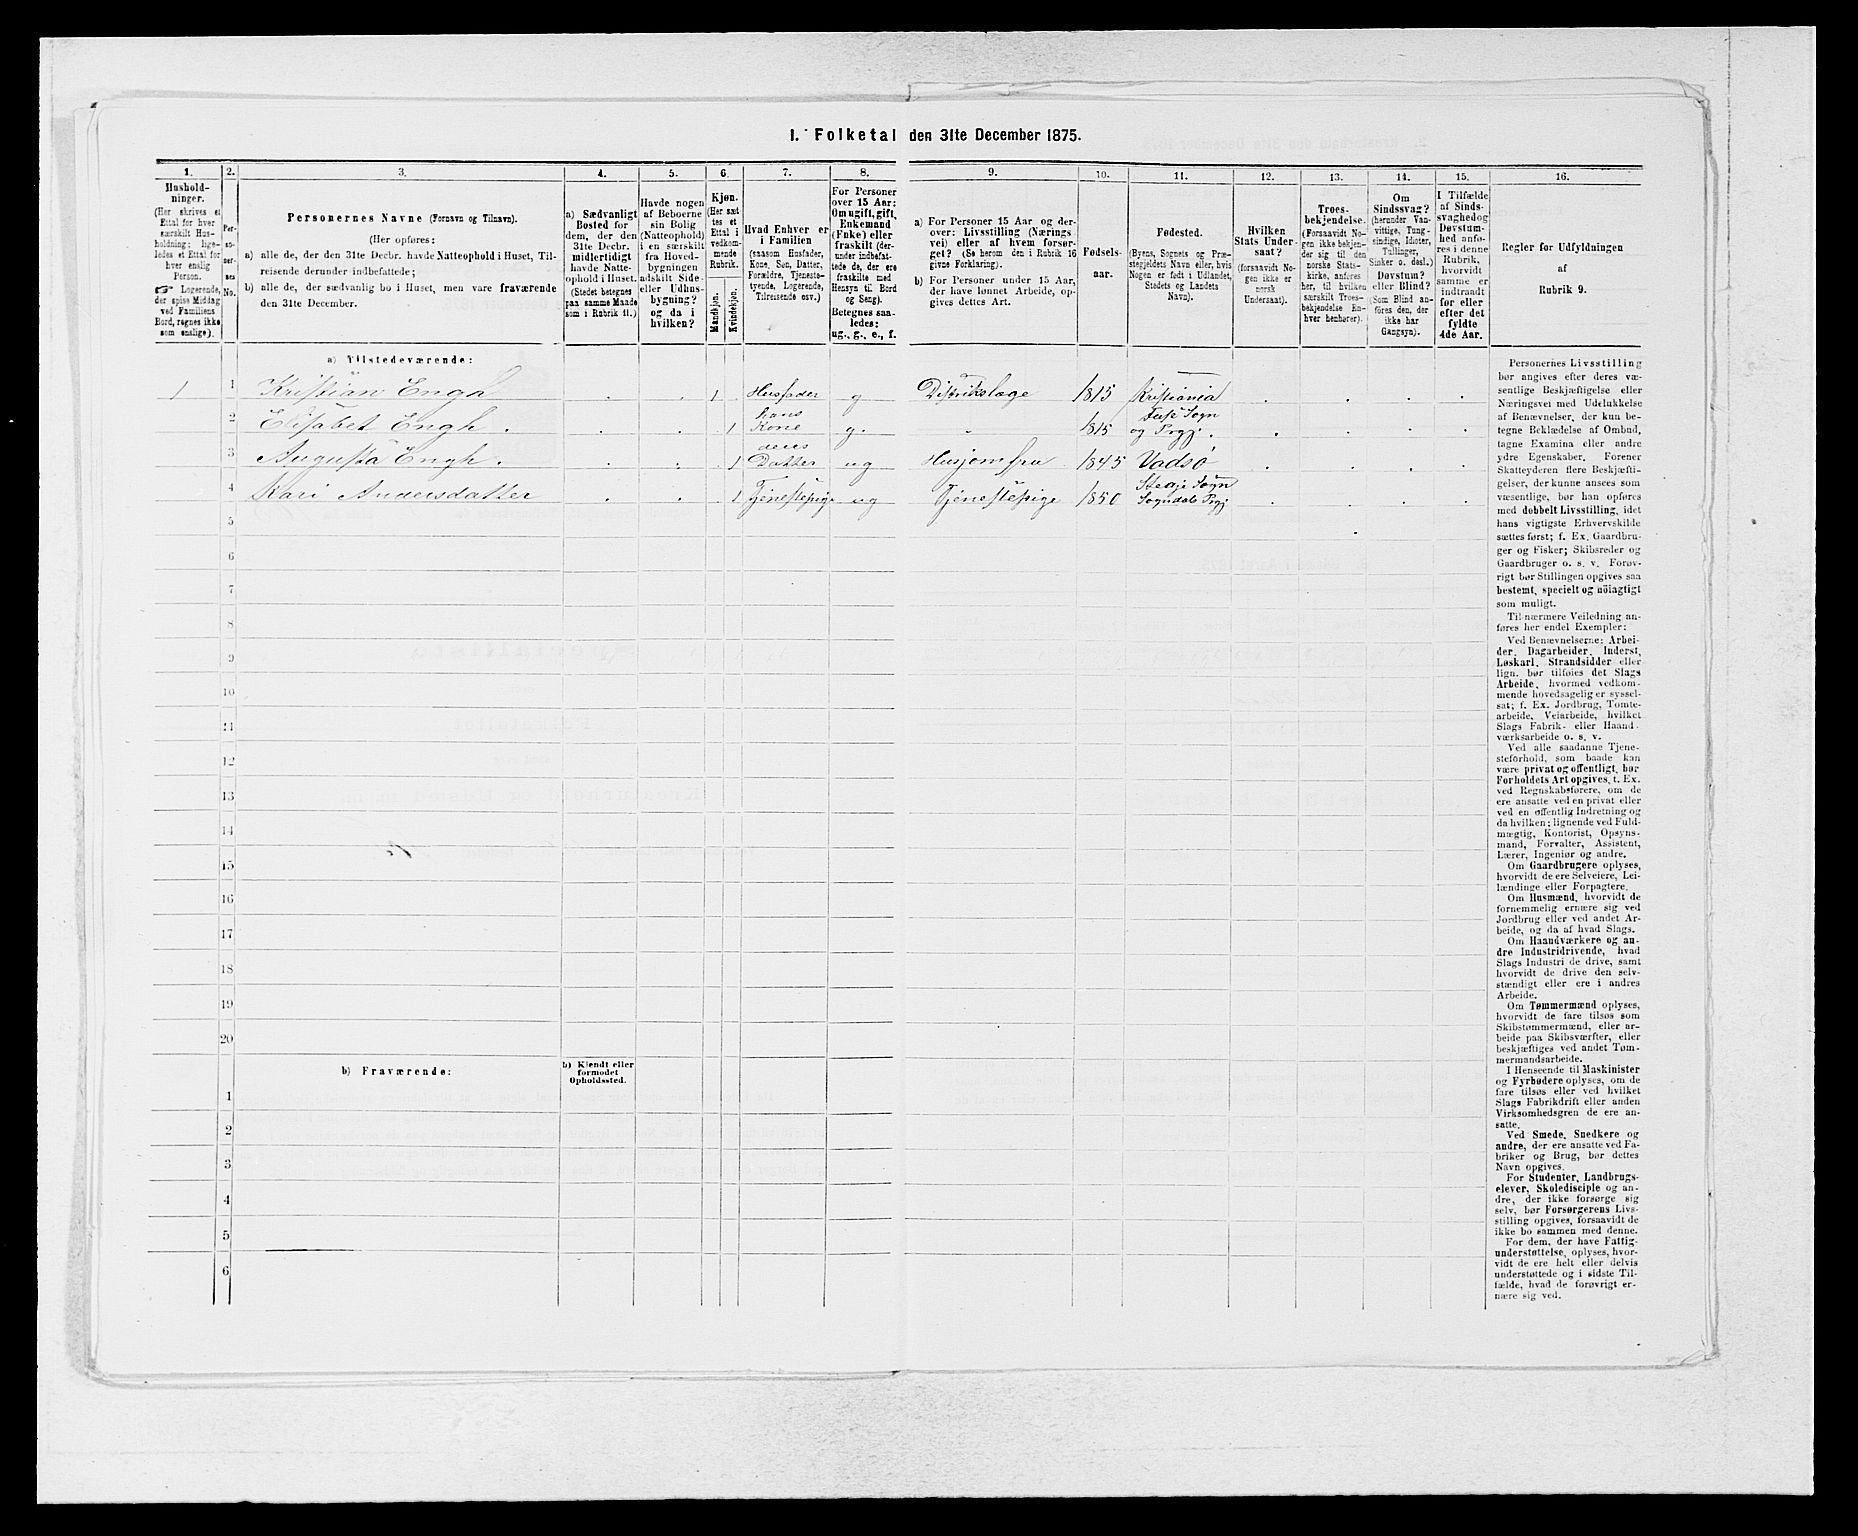 I. Folketal den 31te December 1875.
1.
Hushold-
ninger.
(Her skrives et
Ettal for hver
særskilt Hus-
holdning; lige-
ledes et Ettal for
hver enslig
Person.
☞ Logerende,
der spise Middag
ved Familiens
Bord, regnes ikke
som enslige).
2.
Per-
so-
ner-
nes
No.
3.
Personernes Navne (Fornavn og Tilnavn).
(Her opføres:
a) alle de, der den 31te Decbr. havde Natteophold i Huset, Til-
reisende derunder indbefattede;
b) alle de, der sædvanlig bo i Huset, men vare fraværende
den 31te December.
4.
a) Sædvanligt
Bosted for
dem, der den
31te Decbr.
midlertidigt
havde Natte-
ophold i Huset.
(Stedet betegnes
paa samme Maade
som i Rubrik 11.)
5.
Havde nogen
af Beboerne
sin Bolig
(Natteophold)
i en særskilt
fra Hoved-
bygningen
adskilt Side-
eller Udhus-
bygning?
og da i
hvilken?
6.
Kjøn.
(Her sæt-
tes et
Ettal i
vedkom-
mende
Rubrik.
Mandkjøn.
Kvindekjøn.
7.
Hvad Enhver er
i Familien
(saasom Husfader,
Kone, Søn, Datter,
Forældre, Tjeneste-
tyende, Logerende,
Tilreisende osv.)
8.
For Personer
over 15 Aar:
Om ugift, gift,
Enkemand
(Enke) eller
fraskilt (der-
under indbefat-
tede de, der ere
fraskilte med
Hensyn til Bord
og Seng).
Betegnes saa-
ledes:
ug., g., e., f.
9.
a) For Personer 15 Aar og der-
over: Livsstilling (Nærings-
vei) eller af hvem forsør-
get? (Se herom den i Rubrik 16
givne Forklaring).
b) For Personer under 15 Aar,
der have lønnet Arbeide, op-
gives dettes Art.
10.
Fødsels-
aar.
11.
Fødested.
(Byens, Sognets og Præ-
stegjeldets Navn eller, hvis
Nogen er født i Udlandet,
Stedets og Landets
Navn).
12.
Hvilken
Stats Under-
saat?
(forsaavidt No-
gen ikke er
norsk
Undersaat).
13.
Troes-
bekjendelse.
(Forsaavidt No-
gen ikke bekjen-
der sig til den
norske Stats-
kirke, anføres
her, til hvilken
særskilt Troes-
bekjendelse En-
hver henhører).
14.
Om
Sindssvag?
(herunder Van-
vittige, Tung-
sindige, Idioter,
Tullinger,
Sinker o. desl.)
Døvstum?
eller Blind?
(Som Blind an-
føres den, der
ikke har
Gangsyn).
15.
I Tilfælde
af Sinds-
svaghed og
Døvstum-
hed anfø-
res i denne
Rubrik,
hvorvidt
samme er
indtraadt
før eller
efter det
fyldte
4de Aar.
16.
Regler for Udfyldningen
af
Rubrik 9.
a) Tilstedeværende:
1 1 Kristian Engh 1 Husfader g Distrikslæge 1815 Kristiania
2 Elisabet Engh. 1 hans Kone g. „ 1815 Fuse Sogn og Prgj.
3 Augusta Engh. 1 deres Datter ug Husjomfru 1845 Vadsö
4 Kari Andersdatter 1 Tjenestepige ug Tjenestepige 1850 Stedje Sogn Sogndals Prgj.
5
6
7
8
9
10
11
12
13
14
15
16
17
18
19
20
b) Fraværende:
b) Kjendt eller
formodet
Opholdssted.
1
2
3
4
5
6
Personernes Livsstilling
bør angives efter deres væ-
sentlige Beskjæftigelse eller
Næringsvei med Udelukkelse
af Benævnelser, der kun be-
tegne Beklædelse af Ombud,
tagne Examina eller andre
ydre Egenskaber. Forener
Skatteyderen flere Beskjæfti-
gelser, der kunne ansees som
væsentlige, bør han opføres
med dobbelt Livsstilling, idet
hans vigtigste Erhvervskilde
sættes først; f. Ex. Gaardbru-
ger og Fisker; Skibsreder og
Gaardbruger o. s. v. Forøv-
rigt bør Stillingen opgives saa
bestemt, specielt og nöiagtigt
som muligt.
Til nærmere Veiledning an-
føres her endel Exempler:
Ved Benævnelserne: Arbei-
der, Dagarbeider, Inderst,
Løskarl, Strandsidder eller
lign. bør tilføies det Slags
Arbeide, hvormed vedkom-
mende hovedsagelig er syssel-
sat; f. Ex. Jordbrug, Tomte-
arbeide, Veiarbeide, hvilket
Slags Fabrik- eller Haand-
værksarbeide o. s. v.
Ved alle saadanne Tjene-
steforhold, som baade kan
være privat og offentligt, bør
Forholdets Art opgives, t. Ex.
ved Regnskabsførere, om de
ere ansatte ved en privat eller
ved en offentlig Indretning og
da hvilken; lignende ved Fuld-
mægtig, Kontorist, Opsyns-
mand, Forvalter, Assistent,
Lærer, Ingeniør og andre.
Om Gaardbrugere oplyses,
hvorvidt de ere Selveiere, Lei-
lændinge eller Forpagtere.
Om Husmænd, hvorvidt de
fornemmelig ernære sig ved
Jordbrug eller ved andet Ar-
beide, og da af hvad Slags.
Om Haandværkere og an-
dre Industridrivende, hvad
Slags Industri de drive, samt
hvorvidt de drive den selv-
stændigt eller ere i andres
Arbeide.
Om Tømmermænd oplyses,
hvorvidt de fare tilsøs som
Skibstømmermænd, eller ar-
beide paa Skibsværfter, eller
beskjæftiges ved andet Tøm-
mermandsarbeide.
I Henseende til Maskinister
og Fyrbødere oplyses, om de
fare tilsøs eller ved hvilket
Slags Fabrikdrift eller anden
Virksomhedsgren de ere an-
satte.
Ved Smede, Snedkere og
andre, der ere ansatte ved Fa-
briker og Brug, bør dettes
Navn opgives.
For Studenter, Landbrugs-
elever, Skoledisciple og an-
dre, der ikke forsørge sig
selv, bør Forsørgerens Livs-
stilling opgives, forsaavidt de
ikke bo sammen med denne.
For dem, der have Fattig-
understøttelse, oplyses, hvor-
vidt de ere helt eller delvis
understøttede og i sidste Til-
fælde, hvad de forøvrigt er-
nære sig ved.